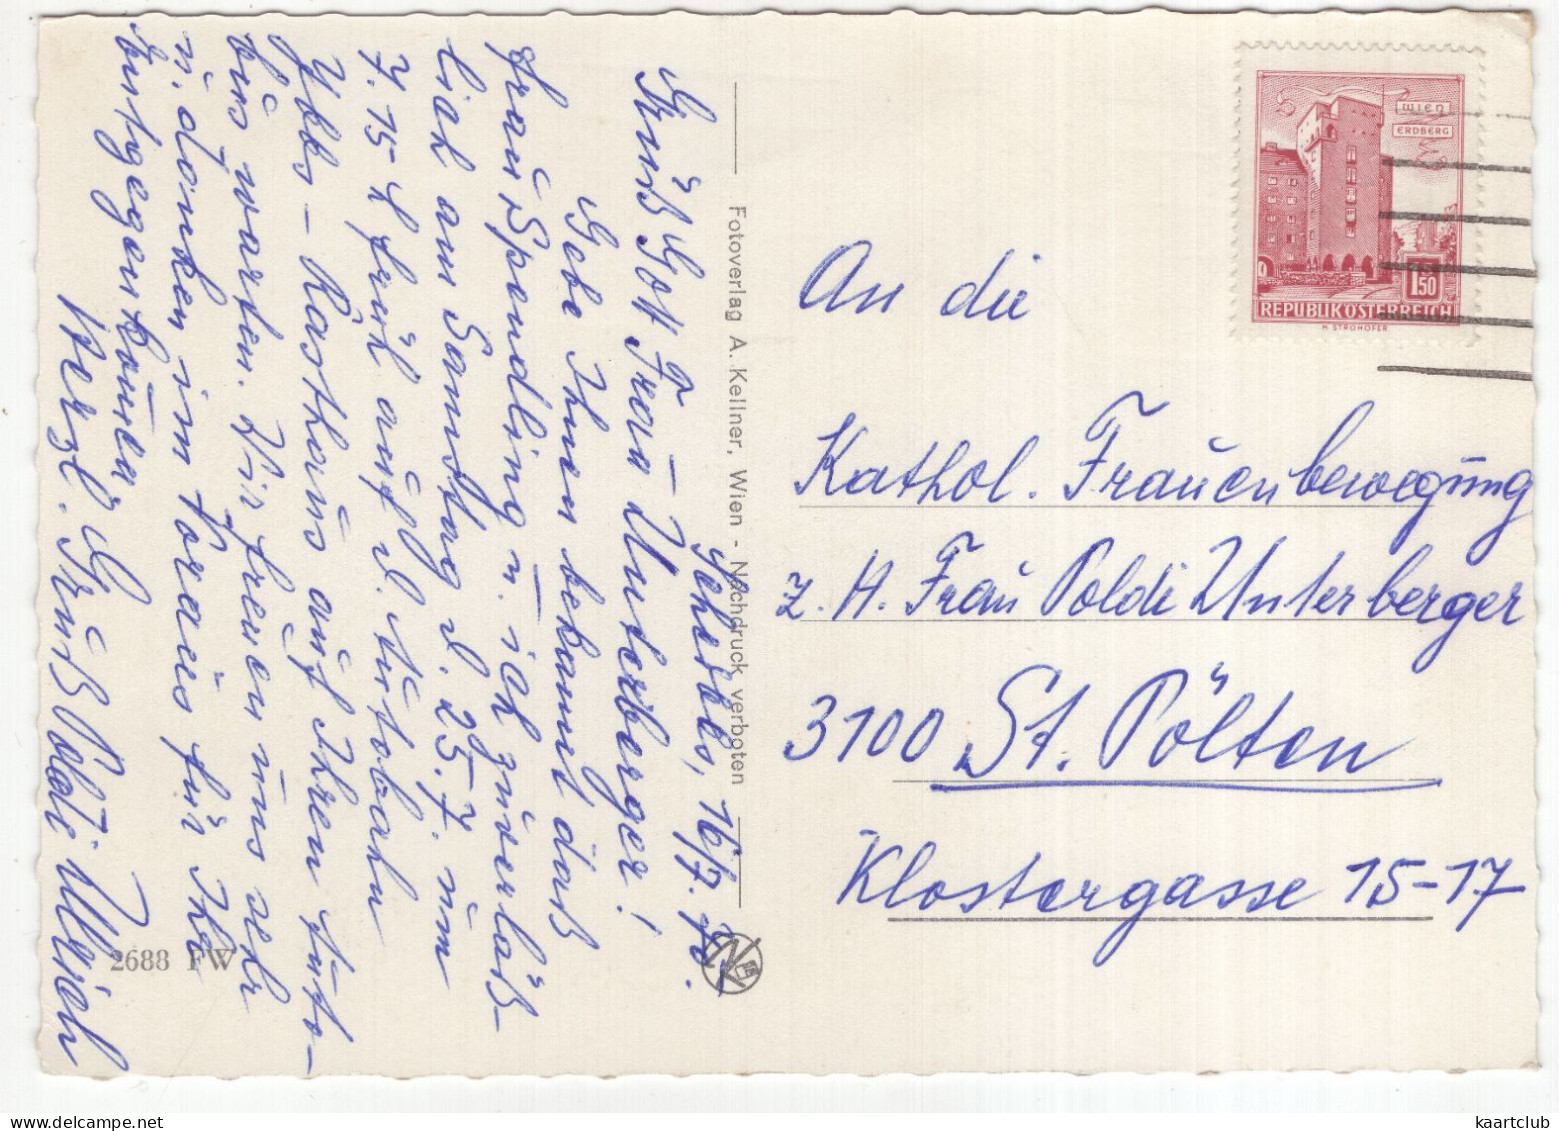 Scheibbs, 16/7. 70.
Grüß Gott Frau Unterberger!
Gebe Ihnen bekannt daß
Frau Spendling u. ich zuverläß-
lich am Samstag d. 25.7. um
7.15 h früh auf d. Autobahn
Ybbs - Rasthaus auf Ihren Auto-
bus warten. Wir freuen uns sehr
u. danken im Voraus für Ihr
Entgegenkommen
Herzl. Grüß Poldi Ulrich
2688 FW
Fotoverlag A. Kellner, Wien - Nachdruck verboten
WIEN
ERDBERG
1.50
REPUBLIK ÖSTERREICH
H. STROHOFER
An die
Kathol. Frauenbewegung
z. H. Frau Poldi Unterberger
3100 St. Pölten
Klostergasse 15-17
kaartclub